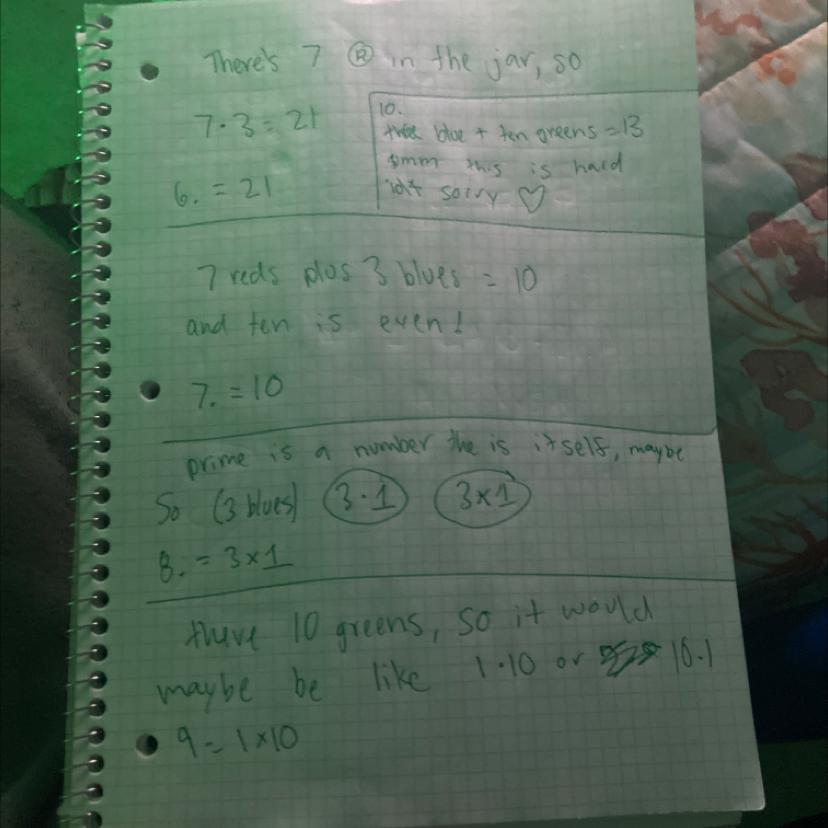 There's 7 Ⓡ in the jar, so
7·3=21
6. = 21
10.
blue + ten greens = 13
this is hard
idk sorry ♡
7 reds plus 3 blues = 10
and ten is even!
7. = 10
prime is a number the is itself, maybe
So (3 blues) 3·1 3×1
8. = 3×1
10 greens, so it would
maybe be like 1·10 or 10·1
9 = 1×10